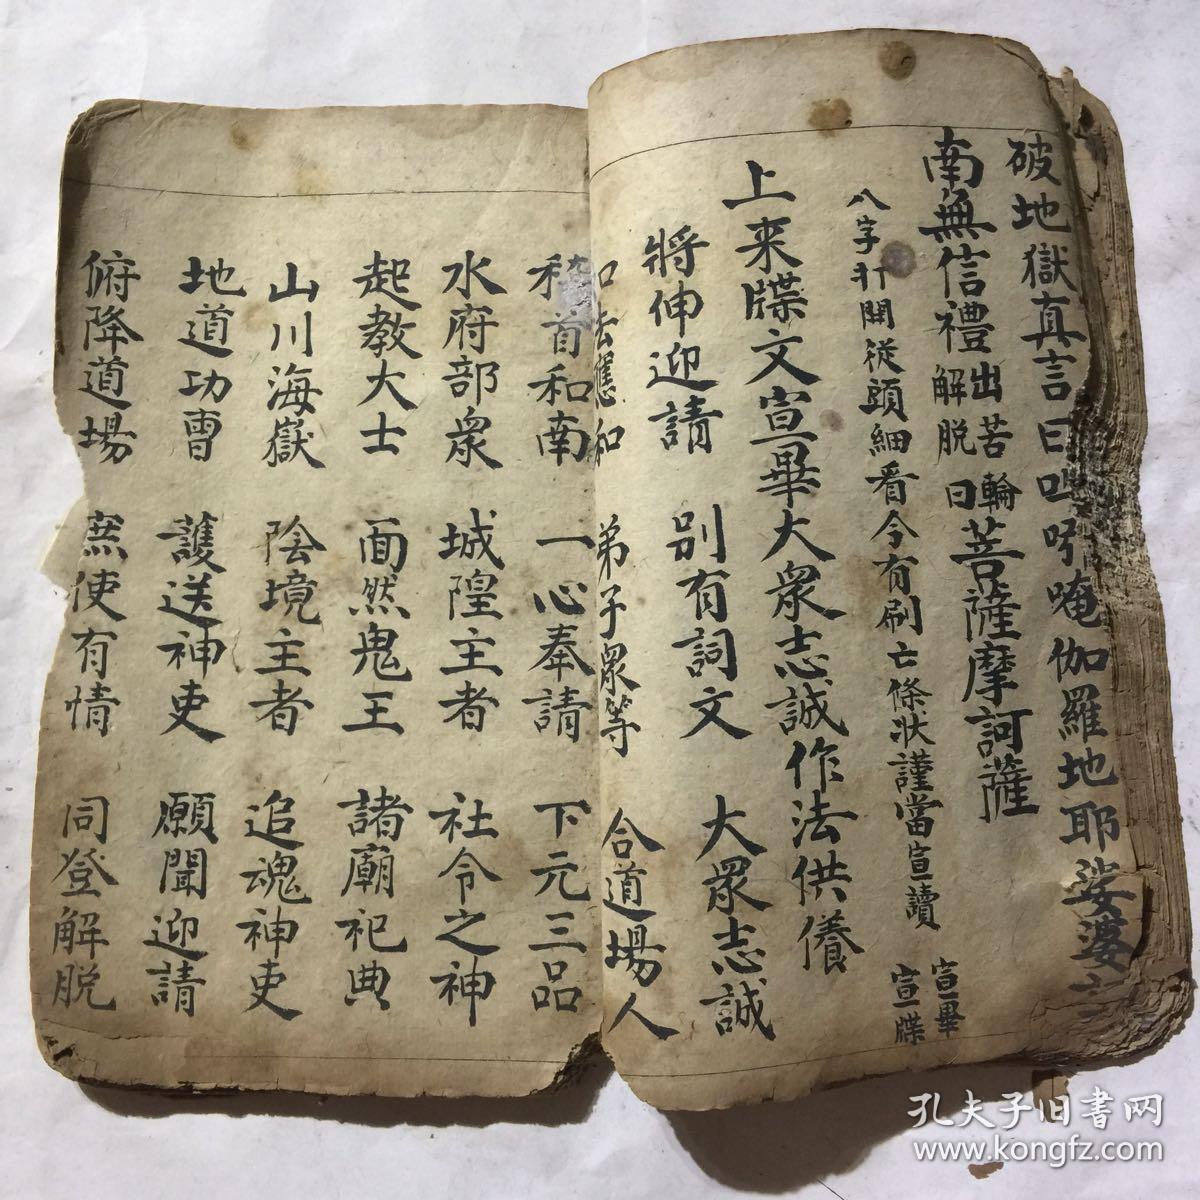 破地獄真言曰 唵伽羅地耶娑婆
南無信禮出苦輪解脱曰菩薩摩訶薩
八字打開從頭細看今有刷亡條狀謹當宣讀 宣畢宣牒
上来牒文宣畢大衆志誠作法供養
將伸迎請 別有詞文 大衆志誠
應和 弟子衆等 合道場人
首和南 一心奉請 下元三品
水府部衆 城隍主者 社令之神
起教大士 面然鬼王 諸廟祀典
山川海嶽 陰境主者 追魂神吏
地道功曹 護送神吏 願聞迎請
俯降道場 庶使有情 同登解脱
孔夫子旧书网
www.kongfz.com